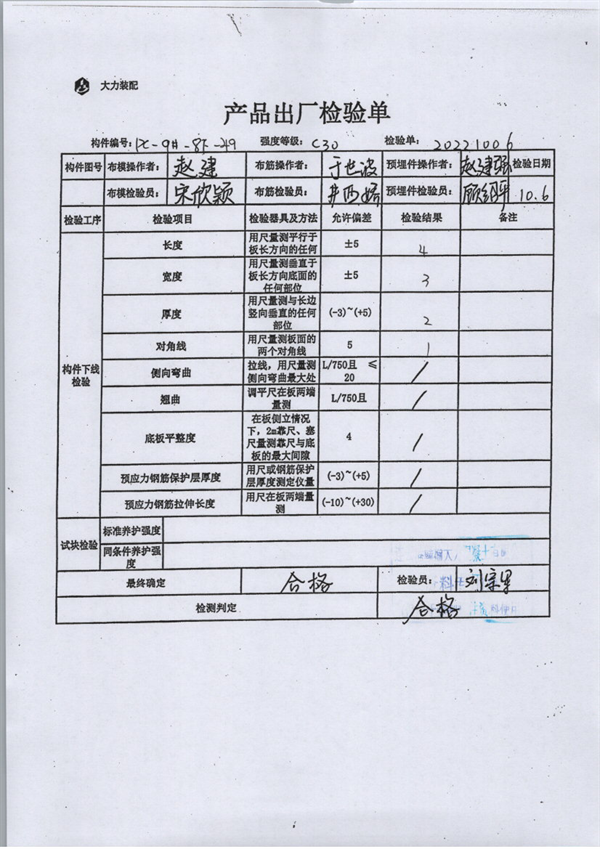 大力装配
产品出厂检验单
构件编号: PC-9#-8F-49 强度等级: C30 检验单: 20221006
构件图号 布模操作者: 赵建 布筋操作者: 于世波 预埋件操作者: 赵建强 检验日期
布模检验员: 宋欣颖 布筋检验员: 预埋件检验员: 10.6
检验工序 检验项目 检验器具及方法 允许偏差 检验结果 备注
构件下线检验
长度 用尺量测平行于板长方向的任何 ±5 4
宽度 用尺量测垂直于板长方向底面的任何部位 ±5 3
厚度 用尺量测与长边竖向垂直的任何部位 (-3)~(+5) 2
对角线 用尺量测板面的两个对角线 5 1
侧向弯曲 拉线，用尺量测侧向弯曲最大处 L/750且 ≤20 /
翘曲 调平尺在板两端量测 L/750且 /
底板平整度 在板侧立情况下，2m靠尺、塞尺量测靠尺与底板的最大间隙 4 /
预应力钢筋保护层厚度 用尺或钢筋保护层厚度测定仪量 (-3)~(+5) /
预应力钢筋拉伸长度 用尺在板两端量测 (-10)~(+30) /
试块检验 标准养护强度
同条件养护强度
最终确定 合格 检验员: 刘宗
检测判定 合格